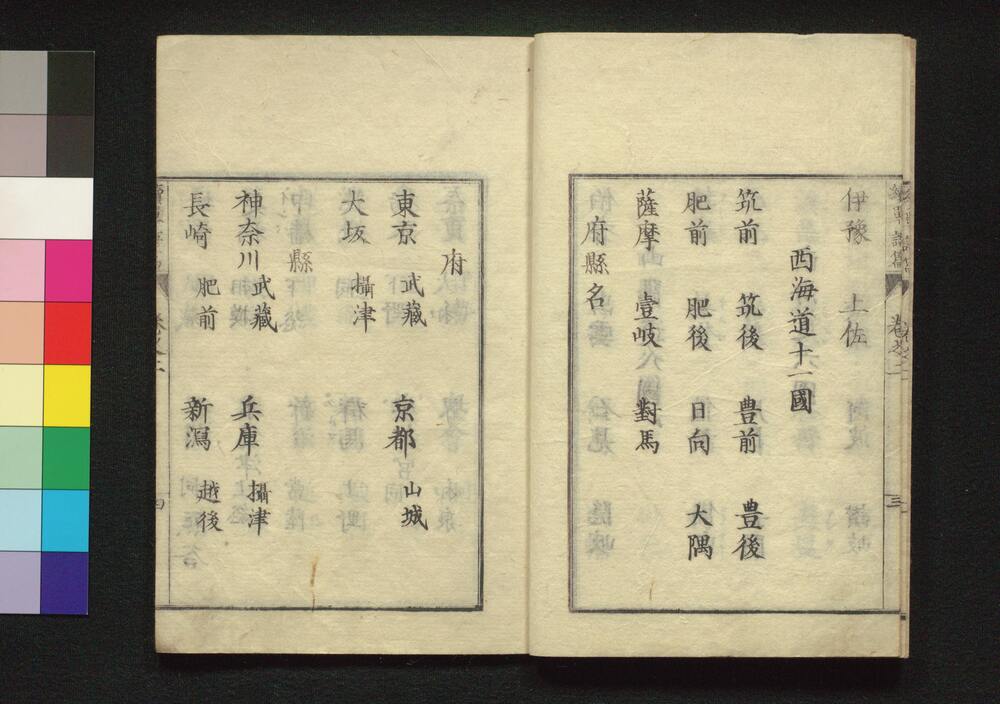 伊豫 土佐
西海道十一國
筑前 筑後 豊前 豊後
肥前 肥後 日向 大隅
薩摩 壹岐 對馬
府縣名
三
府
東京 武藏 京都 山城
大坂 攝津
縣
神奈川 武藏 兵庫 攝津
長崎 肥前 新瀉 越後
四